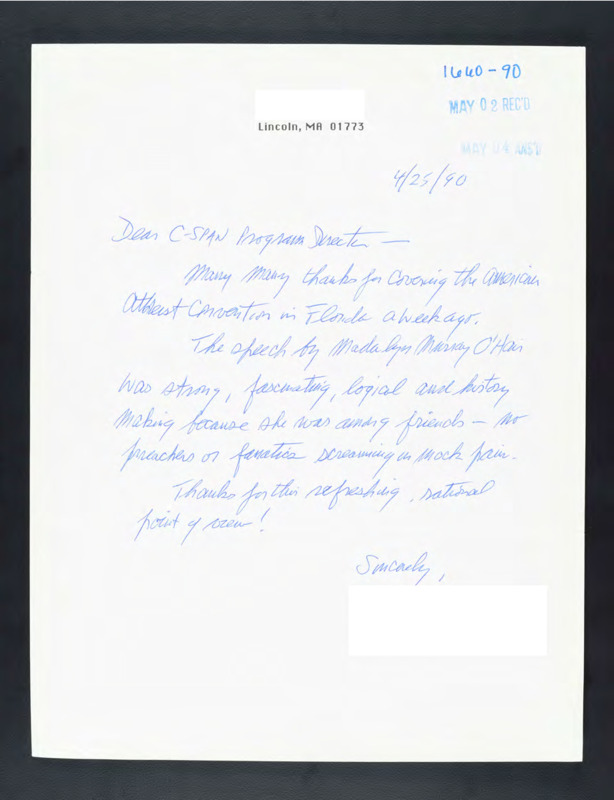 1640-90
MAY 02 REC'D
MAY 04 ANS'D
Lincoln, MA 01773
4/25/90
Dear C-SPAN Program Director —
Many many thanks for covering the American
Atheist Convention in Florida a week ago.
The speech by Madalyn Murray O'Hair
was strong, fascinating, logical and history
making because she was among friends — no
preachers or fanatics screaming in mock pain.
Thanks for this refreshing, rational
point of view!
Sincerely,